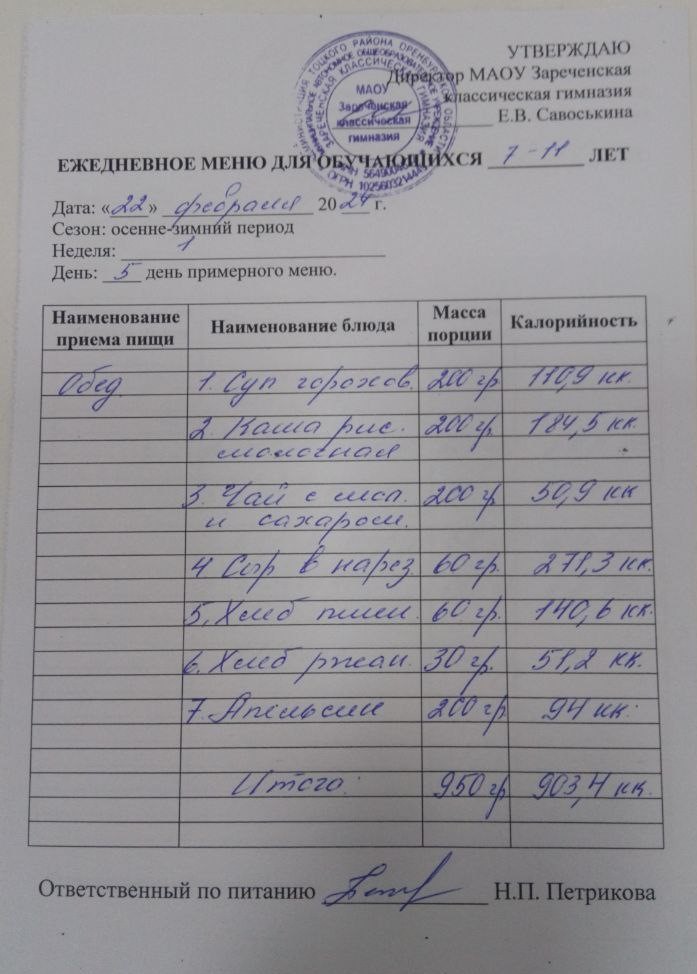 УТВЕРЖДАЮ
Директор МАОУ Зареченская
классическая гимназия
Е.В. Савоськина
МАОУ
Зареченская
классическая
гимназия
ЕЖЕДНЕВНОЕ МЕНЮ ДЛЯ ОБУЧАЮЩИХСЯ 7-11 ЛЕТ
Дата: «22» февраля 2024 г.
Сезон: осенне-зимний период
Неделя: 1
День: 5 день примерного меню.
Наименование приема пищи Наименование блюда Масса порции Калорийность
Обед 1. Суп горохов. 200 гр 110,9 кк.
2. Каша рис. 200 гр 184,5 кк.
молочная
3. Чай с мол. 200 гр 50,9 кк
и сахаром.
4 Сыр в нарез. 60 гр. 271,3 кк.
5. Хлеб пшен. 60 гр. 140,6 кк.
6. Хлеб ржан. 30 гр. 51,2 кк.
7. Апельсин 200 гр 94 кк.
Итого: 950 гр 903,4 кк.
Ответственный по питанию Н.П. Петрикова